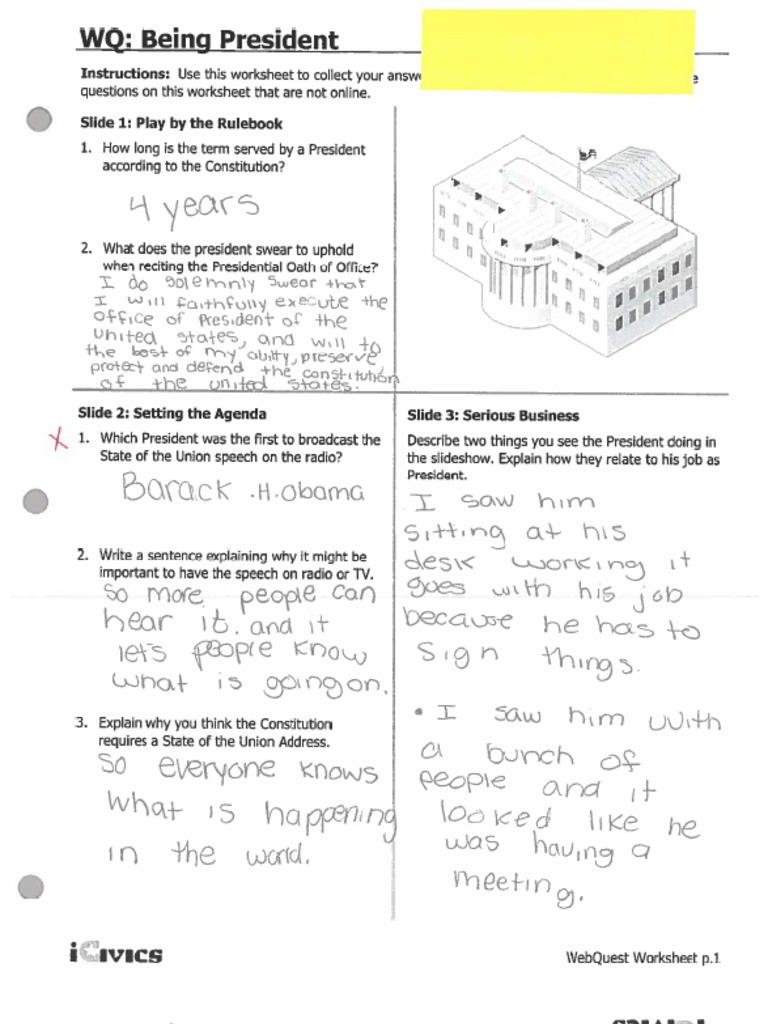 WQ: Being President
Instructions: Use this worksheet to collect your
questions on this worksheet that are not online.
Slide 1: Play by the Rulebook
1. How long is the term served by a President
according to the Constitution?
4 years
2. What does the president swear to uphold
when reciting the Presidential Oath of Office?
I do solemnly swear that
I will faithfully execute the
office of President of the
United states, and will to
the best of my abilty, preserve
protect and defend the constitution
of the united states.
Slide 2: Setting the Agenda
X 1. Which President was the first to broadcast the
State of the Union speech on the radio?
Barack .H. Obama
2. Write a sentence explaining why it might be
important to have the speech on radio or TV.
So more people can
hear it. and it
let's people know
what is going on.
3. Explain why you think the Constitution
requires a State of the Union Address.
So everyone knows
what is happening
in the world.
Slide 3: Serious Business
Describe two things you see the President doing in
the slideshow. Explain how they relate to his job as
President.
I saw him
sitting at his
desk working it
goes with his job
because he has to
sign things.
• I saw him with
a bunch of
people and it
looked like he
was having a
meeting.
iCivics
WebQuest Worksheet p.1